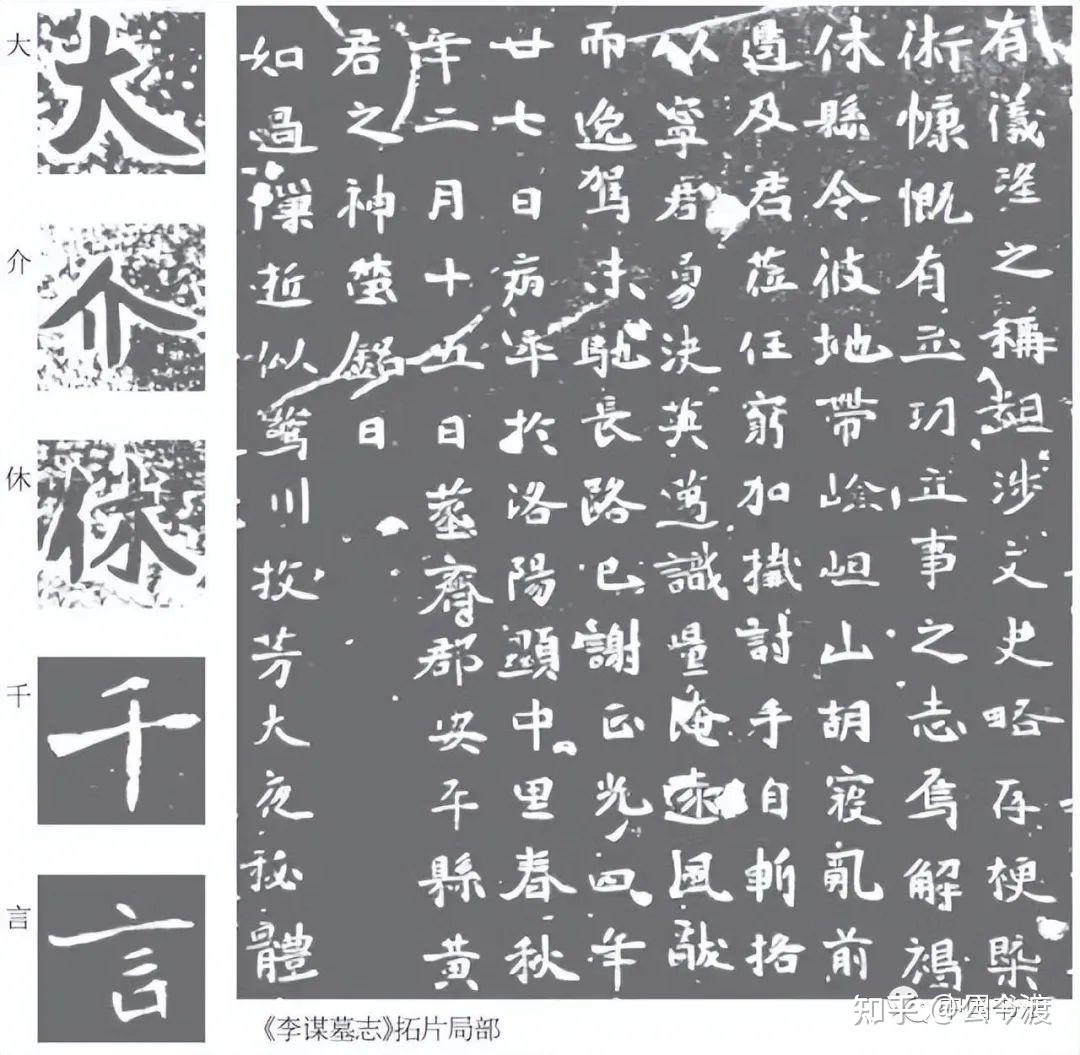 大
介
休
千
言
有儀澄之稱超涉文史略存梗槩
術慷慨有立功立事之志焉解褐
休縣令彼地帶嶮岨山胡寇亂前
邊及君莅任窮加擒討手自斬挌
以寧君勇決英邁識量淹遠風猷
而逸駕未馳長路已謝正光四年
廿七日病卒於洛陽顯中里春秋
年二月十五日葬齊郡安平縣黃
君之神塋銘曰
如過隟逝似驚川投芳大夜秘體
《李谋墓志》拓片局部
知乎